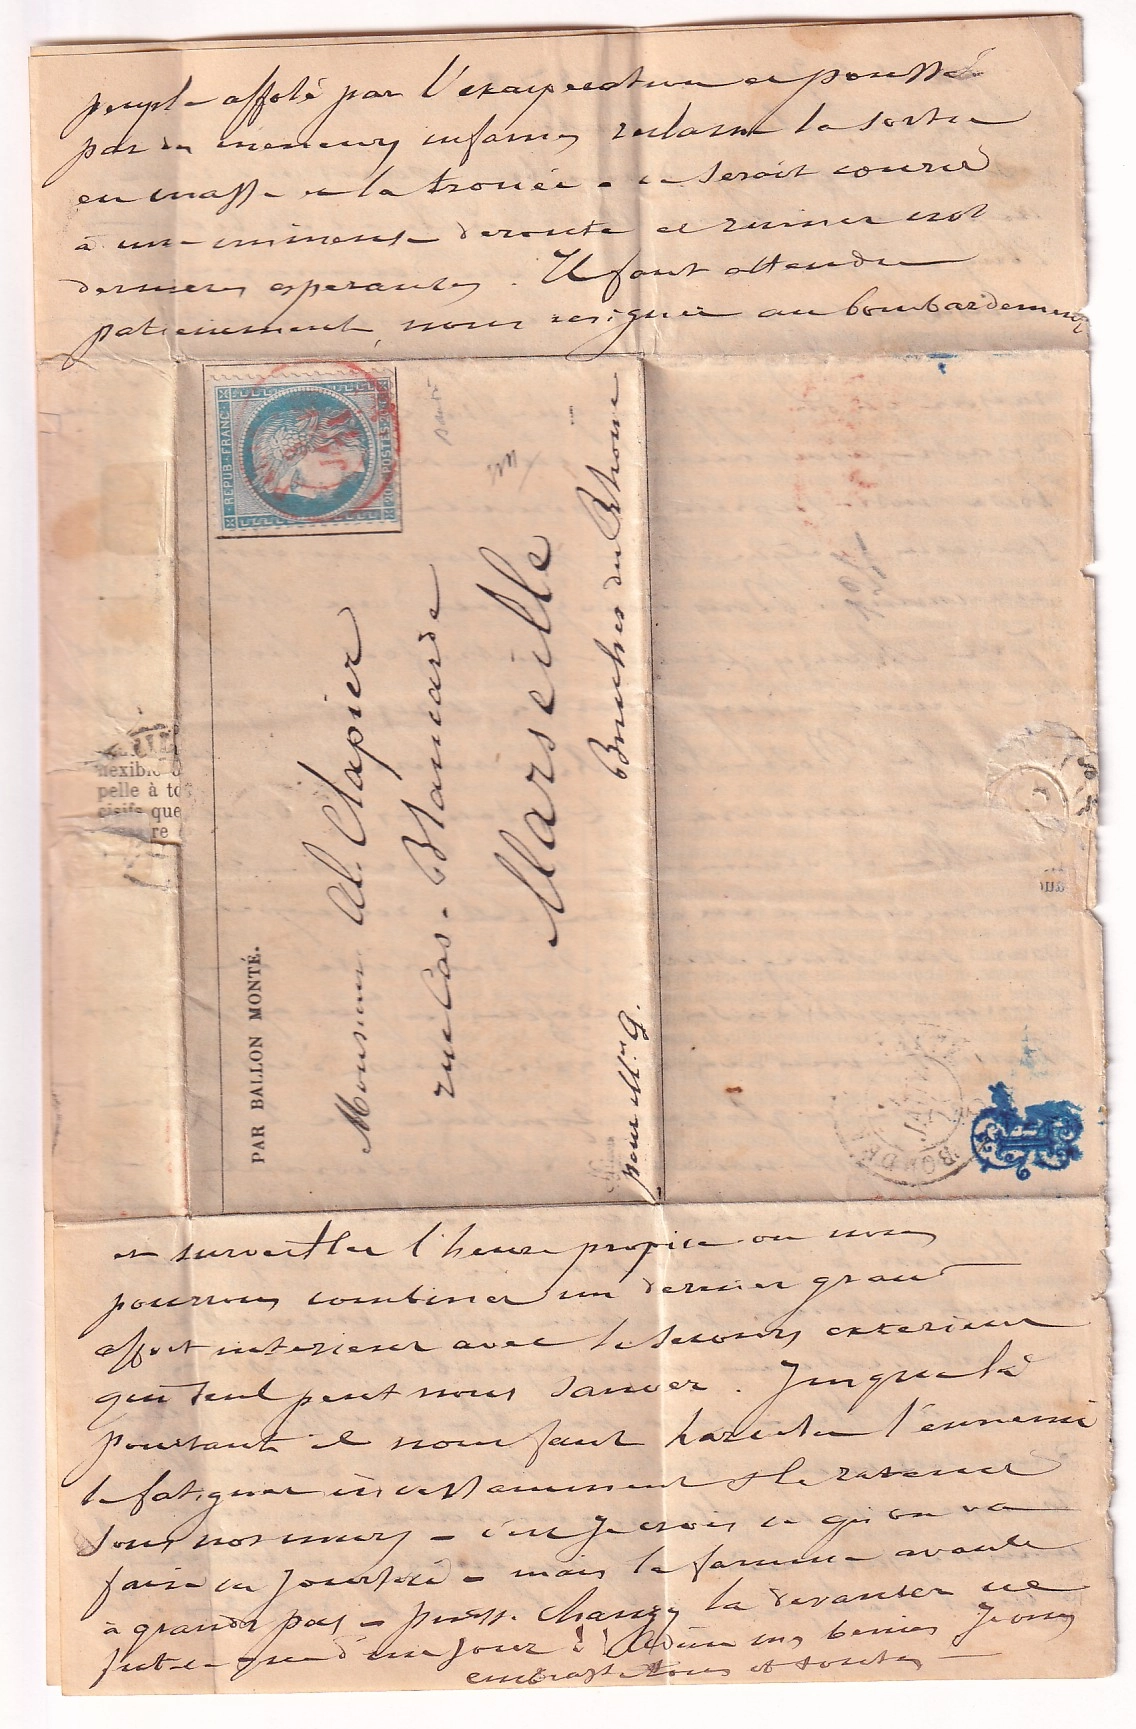 peuple affolé par l'exasperation et poussé
par des meneurs infames reclame la sortie
en masse et la trouée - ce serait courir
à une immense deroute et ruiner nos
dernieres esperances. Il faut attendre
patiemment, nous resigner au bombardement
REPUB. FRANC.
20 POSTES 20
PAR BALLON MONTÉ.
Monsieur Al. Clapier
rue Cas. Blancarde
Marseille
Bouches du Rhone
pour Mme G.
flexible
pelle à to
cisifs que
re
BORDE
et surveiller l'heure propice ou nous
pourrons combiner un dernier grand
effort interieur avec le secours exterieur
qui seul peut nous sauver. Jusque là
pourtant il nous faut harceler l'ennemi
le fatiguer incessamment et le ramener
sous nos murs - c'est je crois ce qu'on va
faire - mais la famine avance
à grands pas - puisse Chanzy la devancer ne
fut-ce que d'un jour ! Adieu mes benies je vous
embrasse tous et toutes -